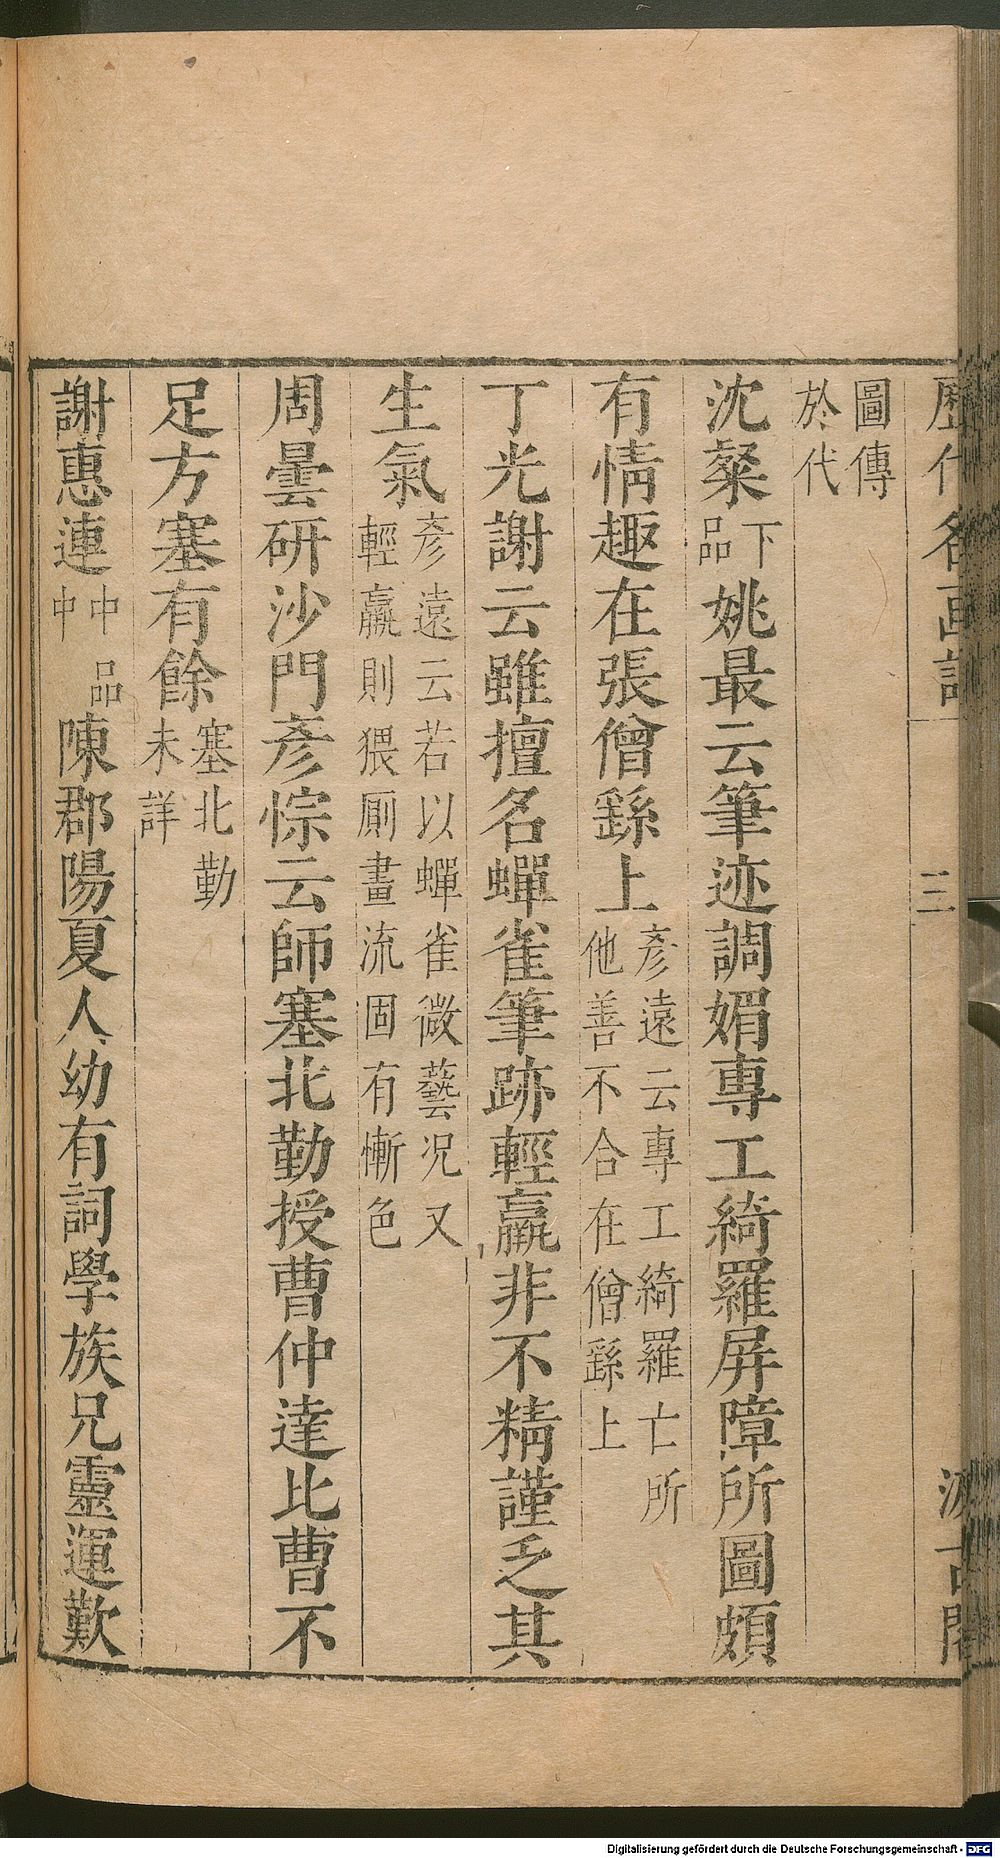 歷代名畫記
三
汲古閣
圖傳
於代
沈粲下品姚最云筆迹調媚專工綺羅屏障所圖頗
有情趣在張僧繇上彥遠云專工綺羅亡所他善不合在僧繇上
丁光謝云雖擅名蟬雀筆跡輕羸非不精謹乏其
生氣彥遠云若以蟬雀微藝况又輕羸則猥厠畫流固有慚色
周曇研沙門彥悰云師塞北勤授曹仲達比曹不
足方塞有餘塞北勤未詳
謝惠連中品中陳郡陽夏人幼有詞學族兄靈運歎
Digitalisierung gefördert durch die Deutsche Forschungsgemeinschaft - DFG